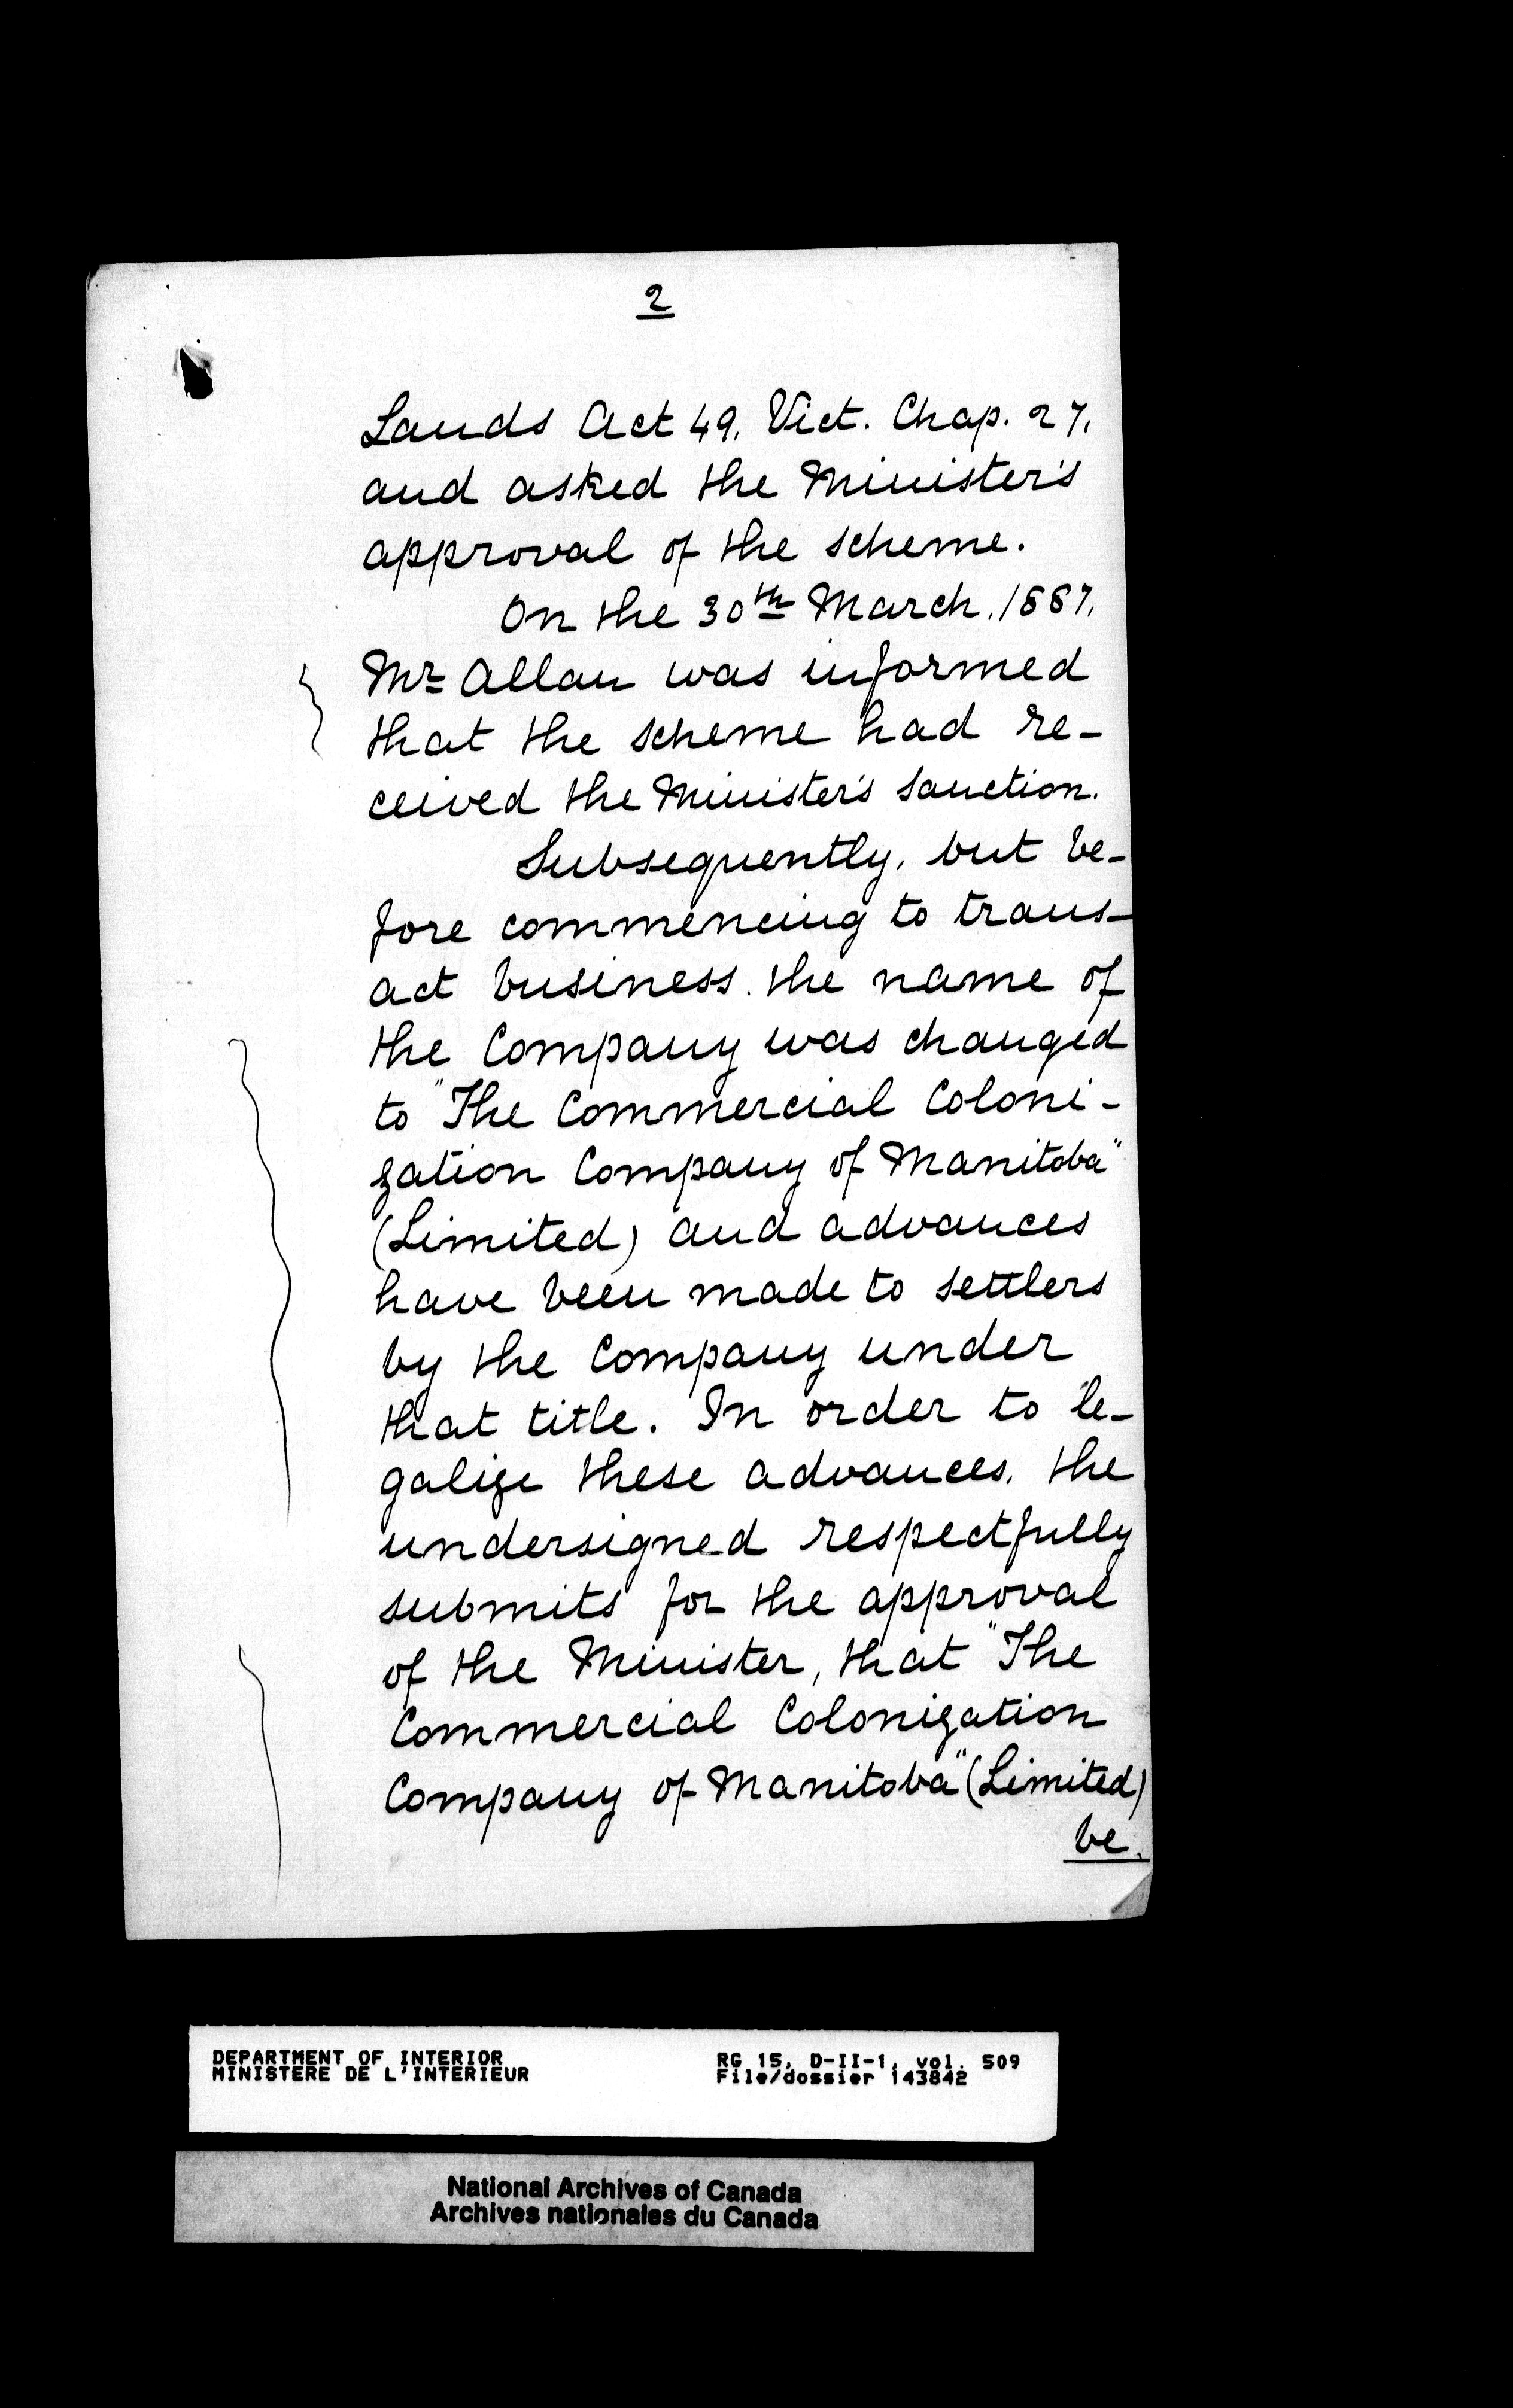 2
Lands Act 49. Vict. Chap. 27.
and asked the Minister's
approval of the scheme.
On the 30th March, 1887,
Mr Allan was informed
that the scheme had re-
ceived the Minister's sanction.
Subsequently, but be-
fore commencing to trans-
act business. the name of
the Company was changed
to "The Commercial Coloni-
zation Company of Manitoba"
(Limited) and advances
have been made to settlers
by the Company under
that title. In order to le-
galize these advances, the
undersigned respectfully
submits for the approval
of the Minister, that "The
Commercial Colonization
Company of Manitoba" (Limited)
be.
DEPARTMENT OF INTERIOR
MINISTERE DE L'INTERIEUR
RG 15, D-II-1, vol. 509
File/dossier 143842
National Archives of Canada
Archives nationales du Canada